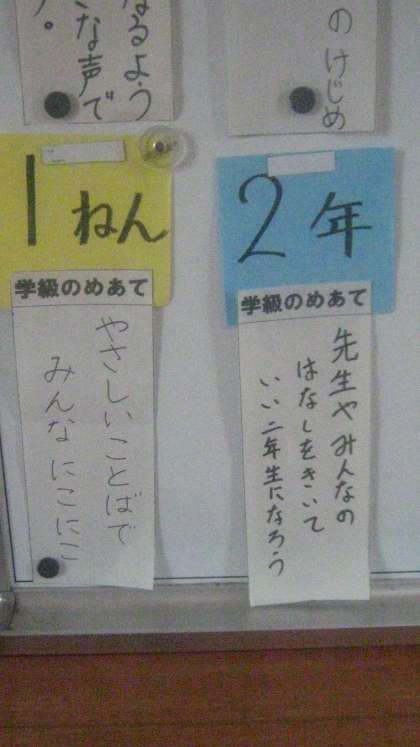 のけじめ
なるよう
きな声で
。
1ねん
学級のめあて
やさしいことばで
みんなにこにこ
2年
学級のめあて
先生やみんなの
はなしをきいて
いい二年生になろう